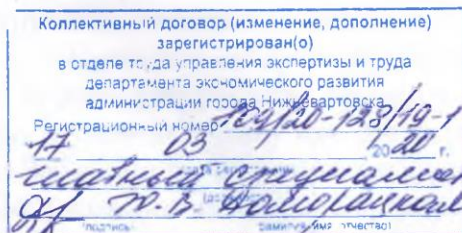 Коллективный договор (изменение, дополнение)
зарегистрирован(о)
в отделе труда управления экспертизы и труда
департамента экономического развития
администрации города Нижневартовска
Регистрационный номер 169/20-128/19-1
17 03 2020 г.
главный специалист
Ю.В.
(подпись, фамилия, имя, отчество)